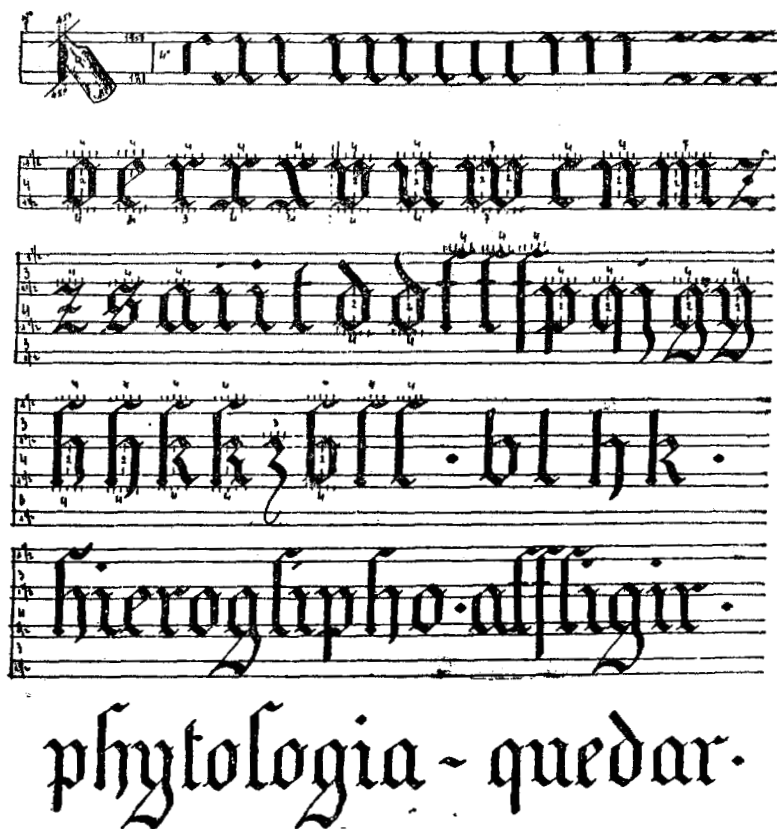 o e r r x v u w c n m z
z s a i i t d d f f ſ p q j g y
h h k k z b l l · b l h k ·
hieroglipho · affligir ·
phytologia - quedar ·